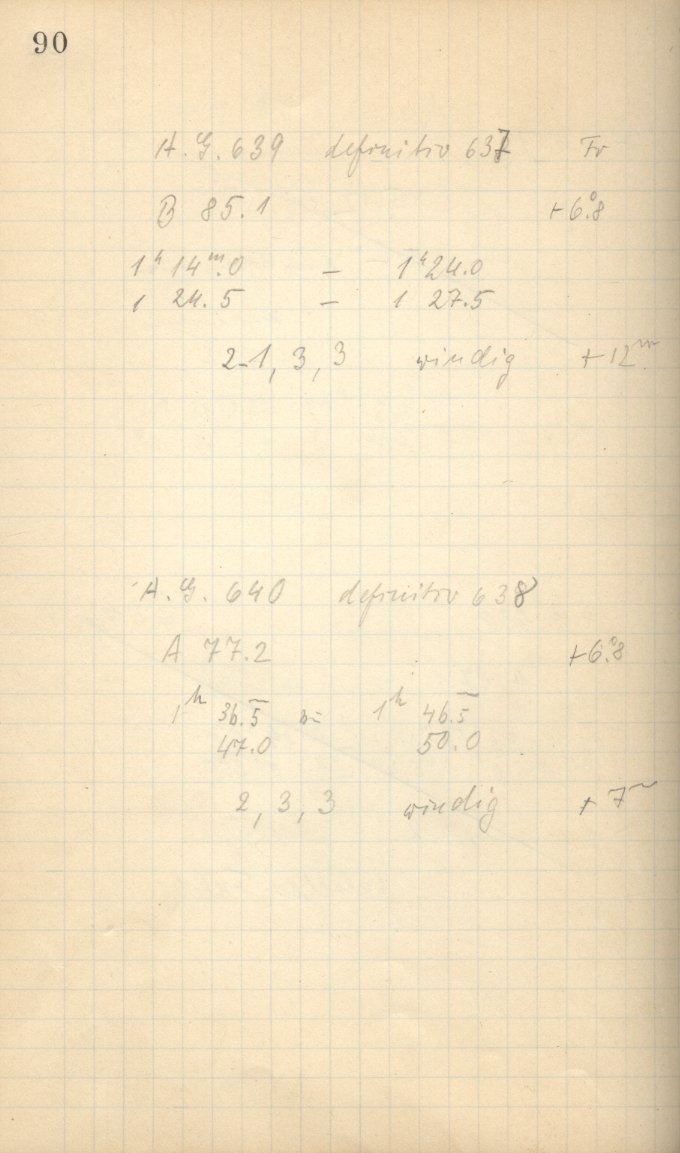 90
A. G. 639 definitiv 637 Fr
B 85.1 +6.°8
1ʰ 14ᵐ.0 – 1ʰ 24.0
1 24.5 – 1 27.5
2-1, 3, 3 windig +12ᵐ
A. G. 640 definitiv 638
A 77.2 +6.°8
1ʰ 36.5 – 1ʰ 46.5
47.0 50.0
2, 3, 3 windig +7ᵐ